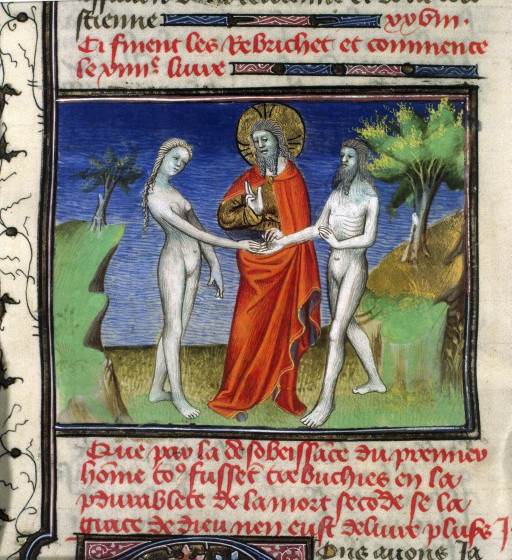 stienne xxviii.
Ci finent les Rebrichet et commence
le xiiiie livre
Que par la desobeissāce du premier
hōme to9 fussēt trebuchies en la
pdurablete de la mort secōde se la
grace de dieu nen eust delivre plusrs